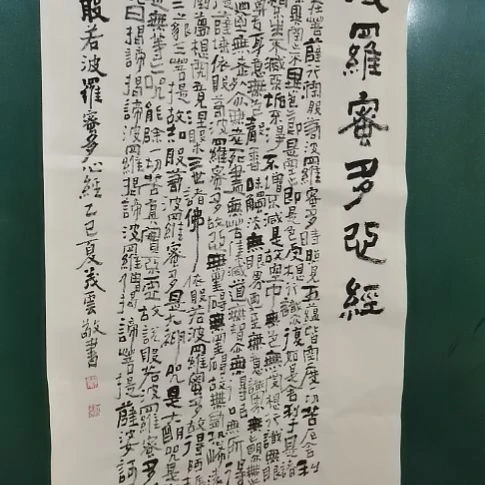 波羅蜜多心經
在菩薩行深般若波羅蜜多時照見五蘊皆空度一切苦厄舍利
異空空不異色色即是空空即是色受想行識亦復如是舍利子是諸
不生不滅不垢不淨不增不減是故空中無色無受想行識無眼
舌身意無色聲香味觸法無眼界乃至無意識界無無明亦無
乃至無老死亦無老死盡無苦集滅道無智亦無得以無所
依般若波羅蜜多故心無罣礙無罣礙故無有恐怖
夢想究竟涅槃三世諸佛依般若波羅蜜多故得阿
三藐三菩提故知般若波羅蜜多是大神咒是大明咒是
無等等咒能除一切苦真實不虛故說般若波羅蜜多
曰揭諦揭諦波羅揭諦波羅僧揭諦菩提薩婆訶
般若波羅蜜多心經乙巳夏義雲敬書